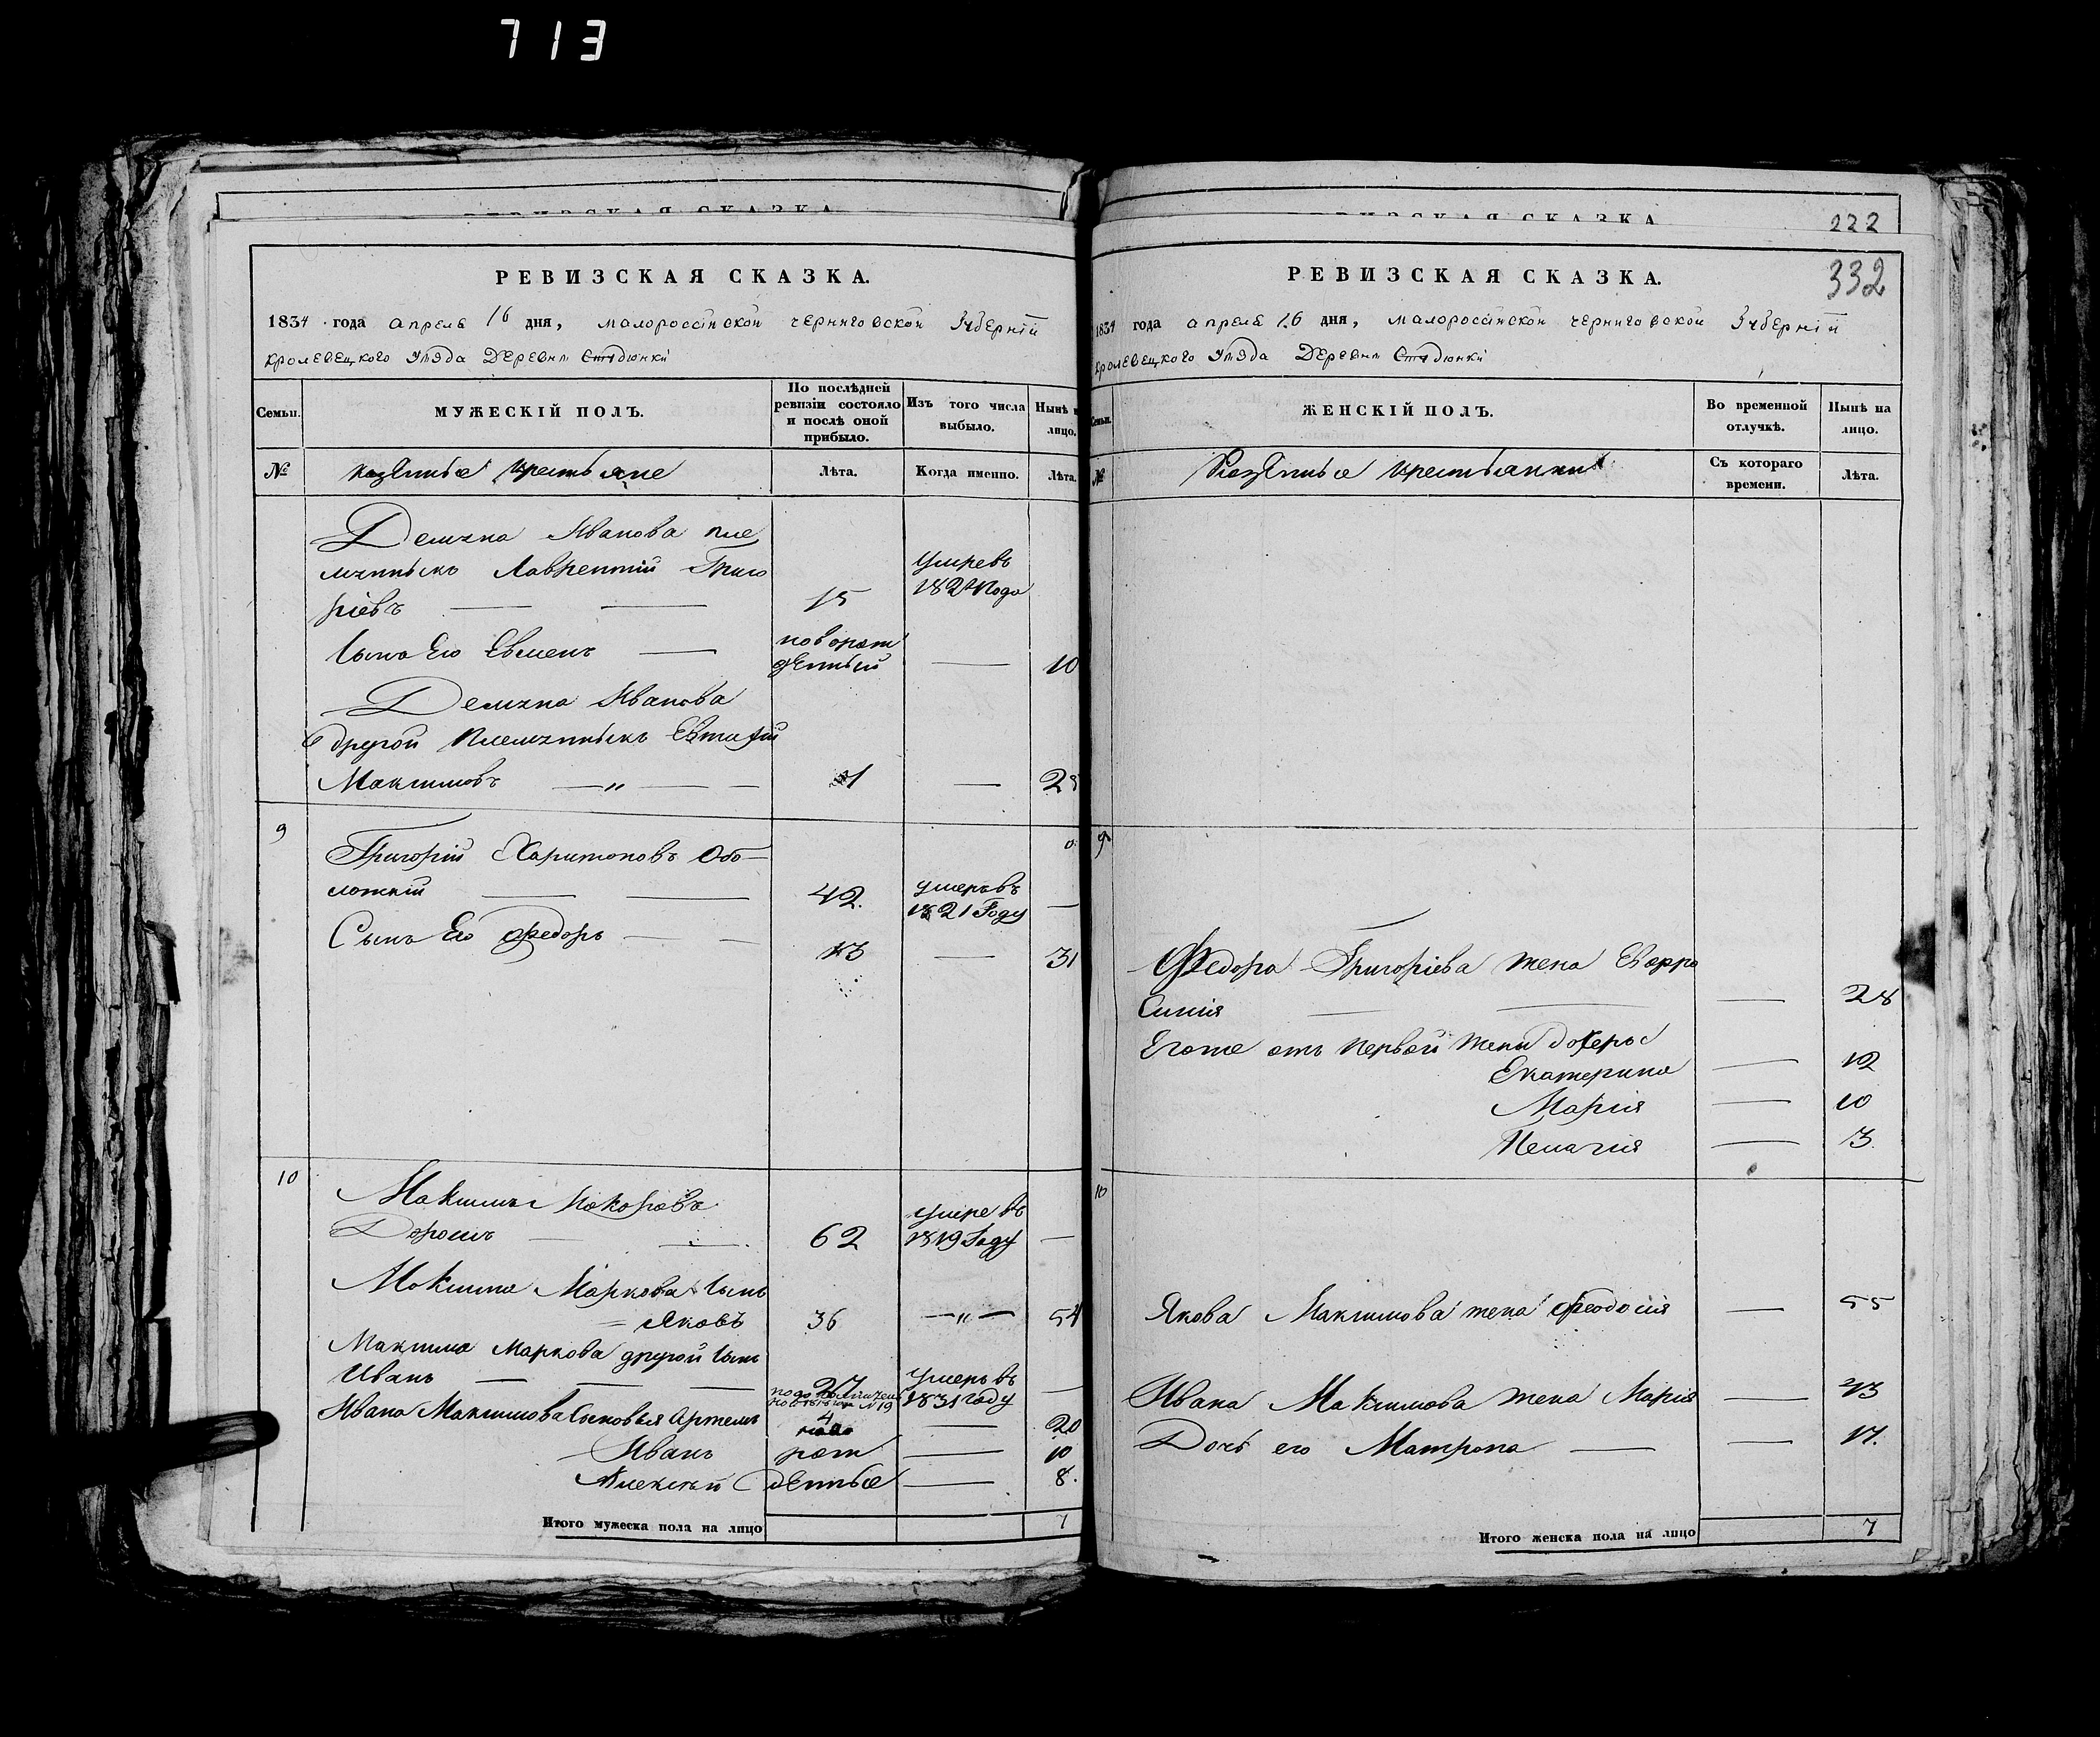 713
222
РЕВИЗСКАЯ СКАЗКА.
1834 года апреля 16 дня, малоросийской черниговской Губернiи
кролевецкого Уѣзда Деревни
Семьи.
МУЖЕСКІЙ ПОЛЪ.
По послѣдней ревизіи состояло и послѣ оной прибыло.
Изъ того числа выбыло.
Нынѣ на лицо.
№
казенные крестьяне
Лѣта.
Когда именно.
Лѣта.
Демяна Иванова пле
мянникъ Лаврентій Григо
ріевъ 15 Умре въ 182 года
Сынъ Его Евменъ новорож денный 10
Демяна Иванова
другой племянникъ Евтифій
Максимовъ 28
9
Григорій Харитоновъ Обо
ложній 42. умеръ въ 1821 Году
Сынъ Его Федоръ 13 31
10
Максимъ Марковъ
Дорошъ 62 умре въ 1819 Году
Максима Маркова Сынъ
Яковъ 36 54
Максима Маркова другой Сынъ
Иванъ 27 умеръ въ 1831 году
Ивана Максимова Сыновья Артемъ 4 20
Иванъ рож 10
Алексѣй денные 8.
Итого мужеска пола на лицо 7
РЕВИЗСКАЯ СКАЗКА.
332
1834 года апреля 16 дня, малоросийской черниговской Губернiи
кролевецкого Уѣзда Деревни
Семьи.
ЖЕНСКІЙ ПОЛЪ.
Во временной отлучкѣ.
Нынѣ на лицо.
№
Казенные крестьянки
Съ котораго времени.
Лѣта.
9
Федора Григоріева жена Евфро
синія 28
Егоже отъ первой жены дочеръ
Екатерина 12
Марія 10
Пелагія 3.
10
Якова Максимова жена Феодосія 55
Ивана Максимова жена Марія 43
Дочь его Матрона 17.
Итого женска пола на лицо 7